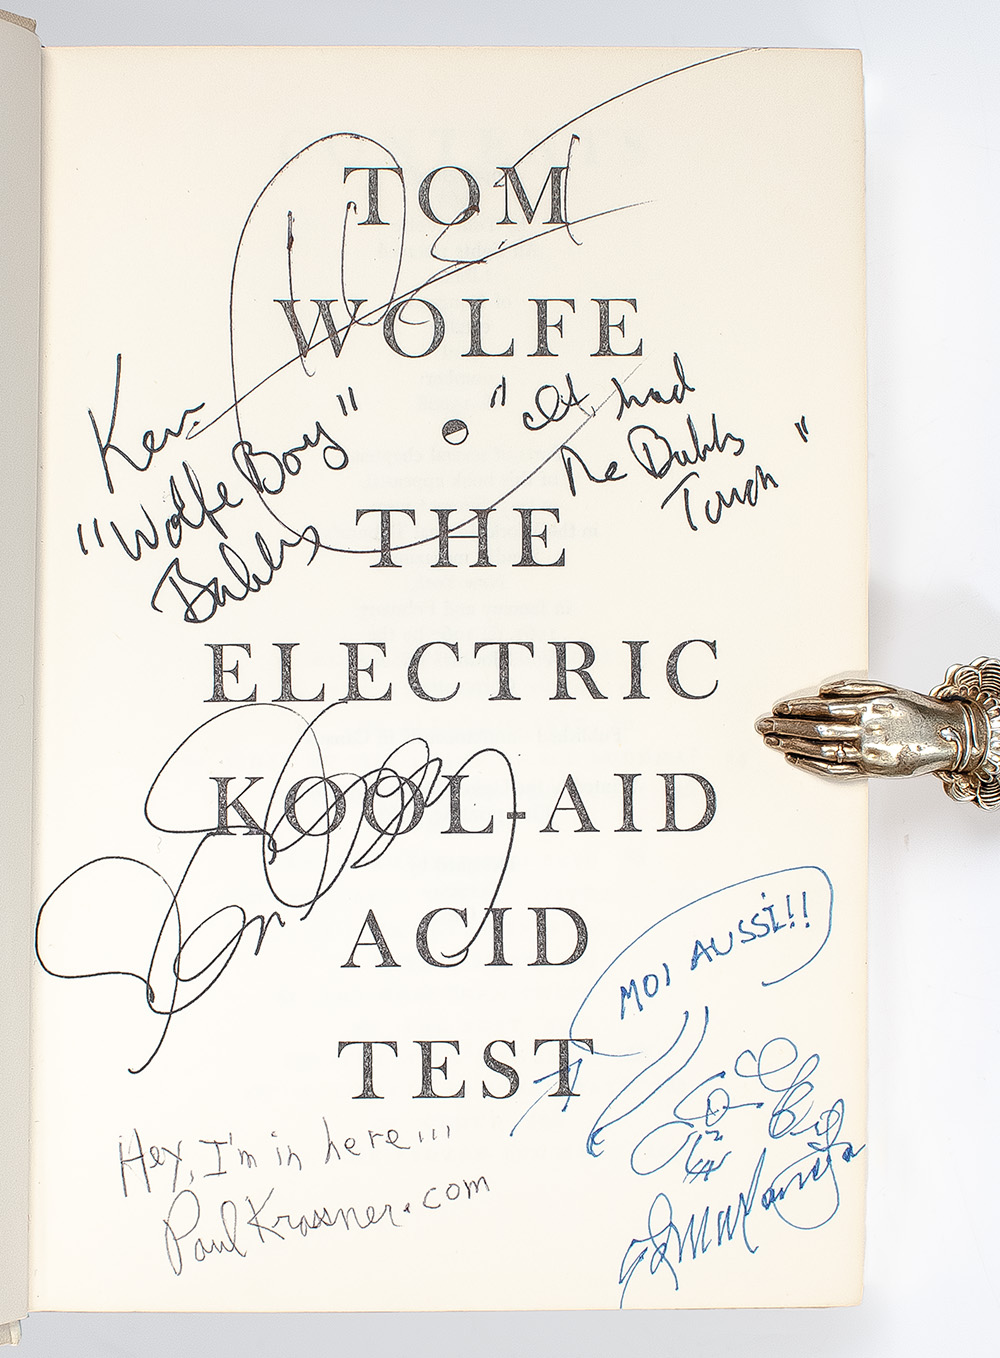 TOM
WOLFE
Ken
"Wolfe Boy"
Babbs
"It had
The Babbs
Touch"
THE
ELECTRIC
KOOL-AID
ACID
TEST
MOI AUSSI!!
Hey, I'm in here!!!
PaulKrassner.com